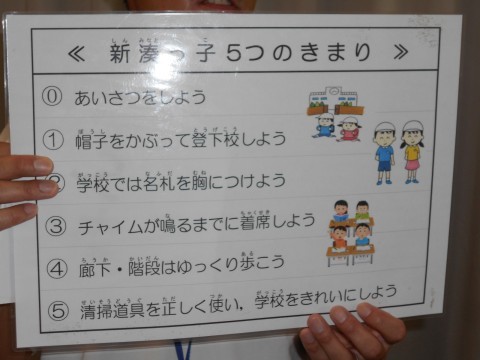 ≪ 新湊っ子 5つのきまり ≫
⓪ あいさつをしよう
① 帽子をかぶって登下校しよう
② 学校では名札を胸につけよう
③ チャイムが鳴るまでに着席しよう
④ 廊下・階段はゆっくり歩こう
⑤ 清掃道具を正しく使い，学校をきれいにしよう